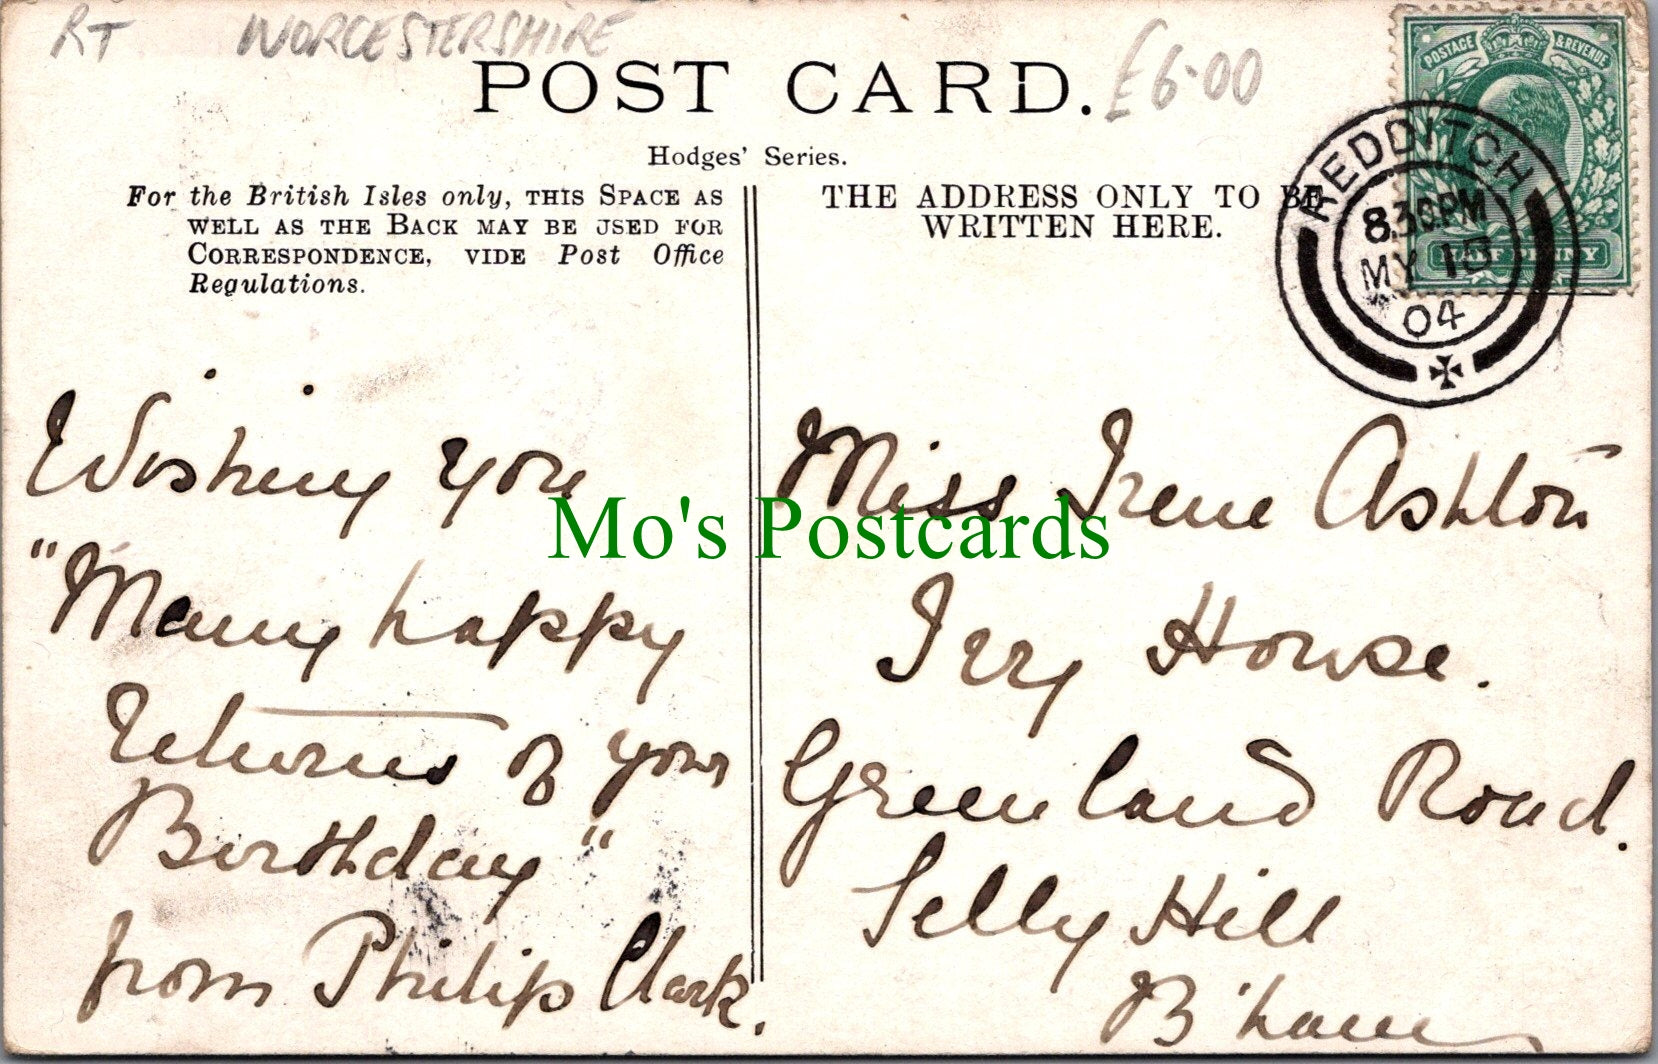 RT WORCESTERSHIRE
£6.00
POST CARD.
Hodges' Series.
For the British Isles only, THIS SPACE AS
WELL AS THE BACK MAY BE USED FOR
CORRESPONDENCE, VIDE Post Office
Regulations.
THE ADDRESS ONLY TO BE
WRITTEN HERE.
POSTAGE & REVENUE
HALF PENNY
REDDITCH
8.30PM
MY
04
Wishing you
"Many happy
Returns of your
Birthday"
from Philip Clark.
Miss Irene Ashton
Ivy House.
Greenland Road.
Selly Hill
B'ham
Mo's Postcards